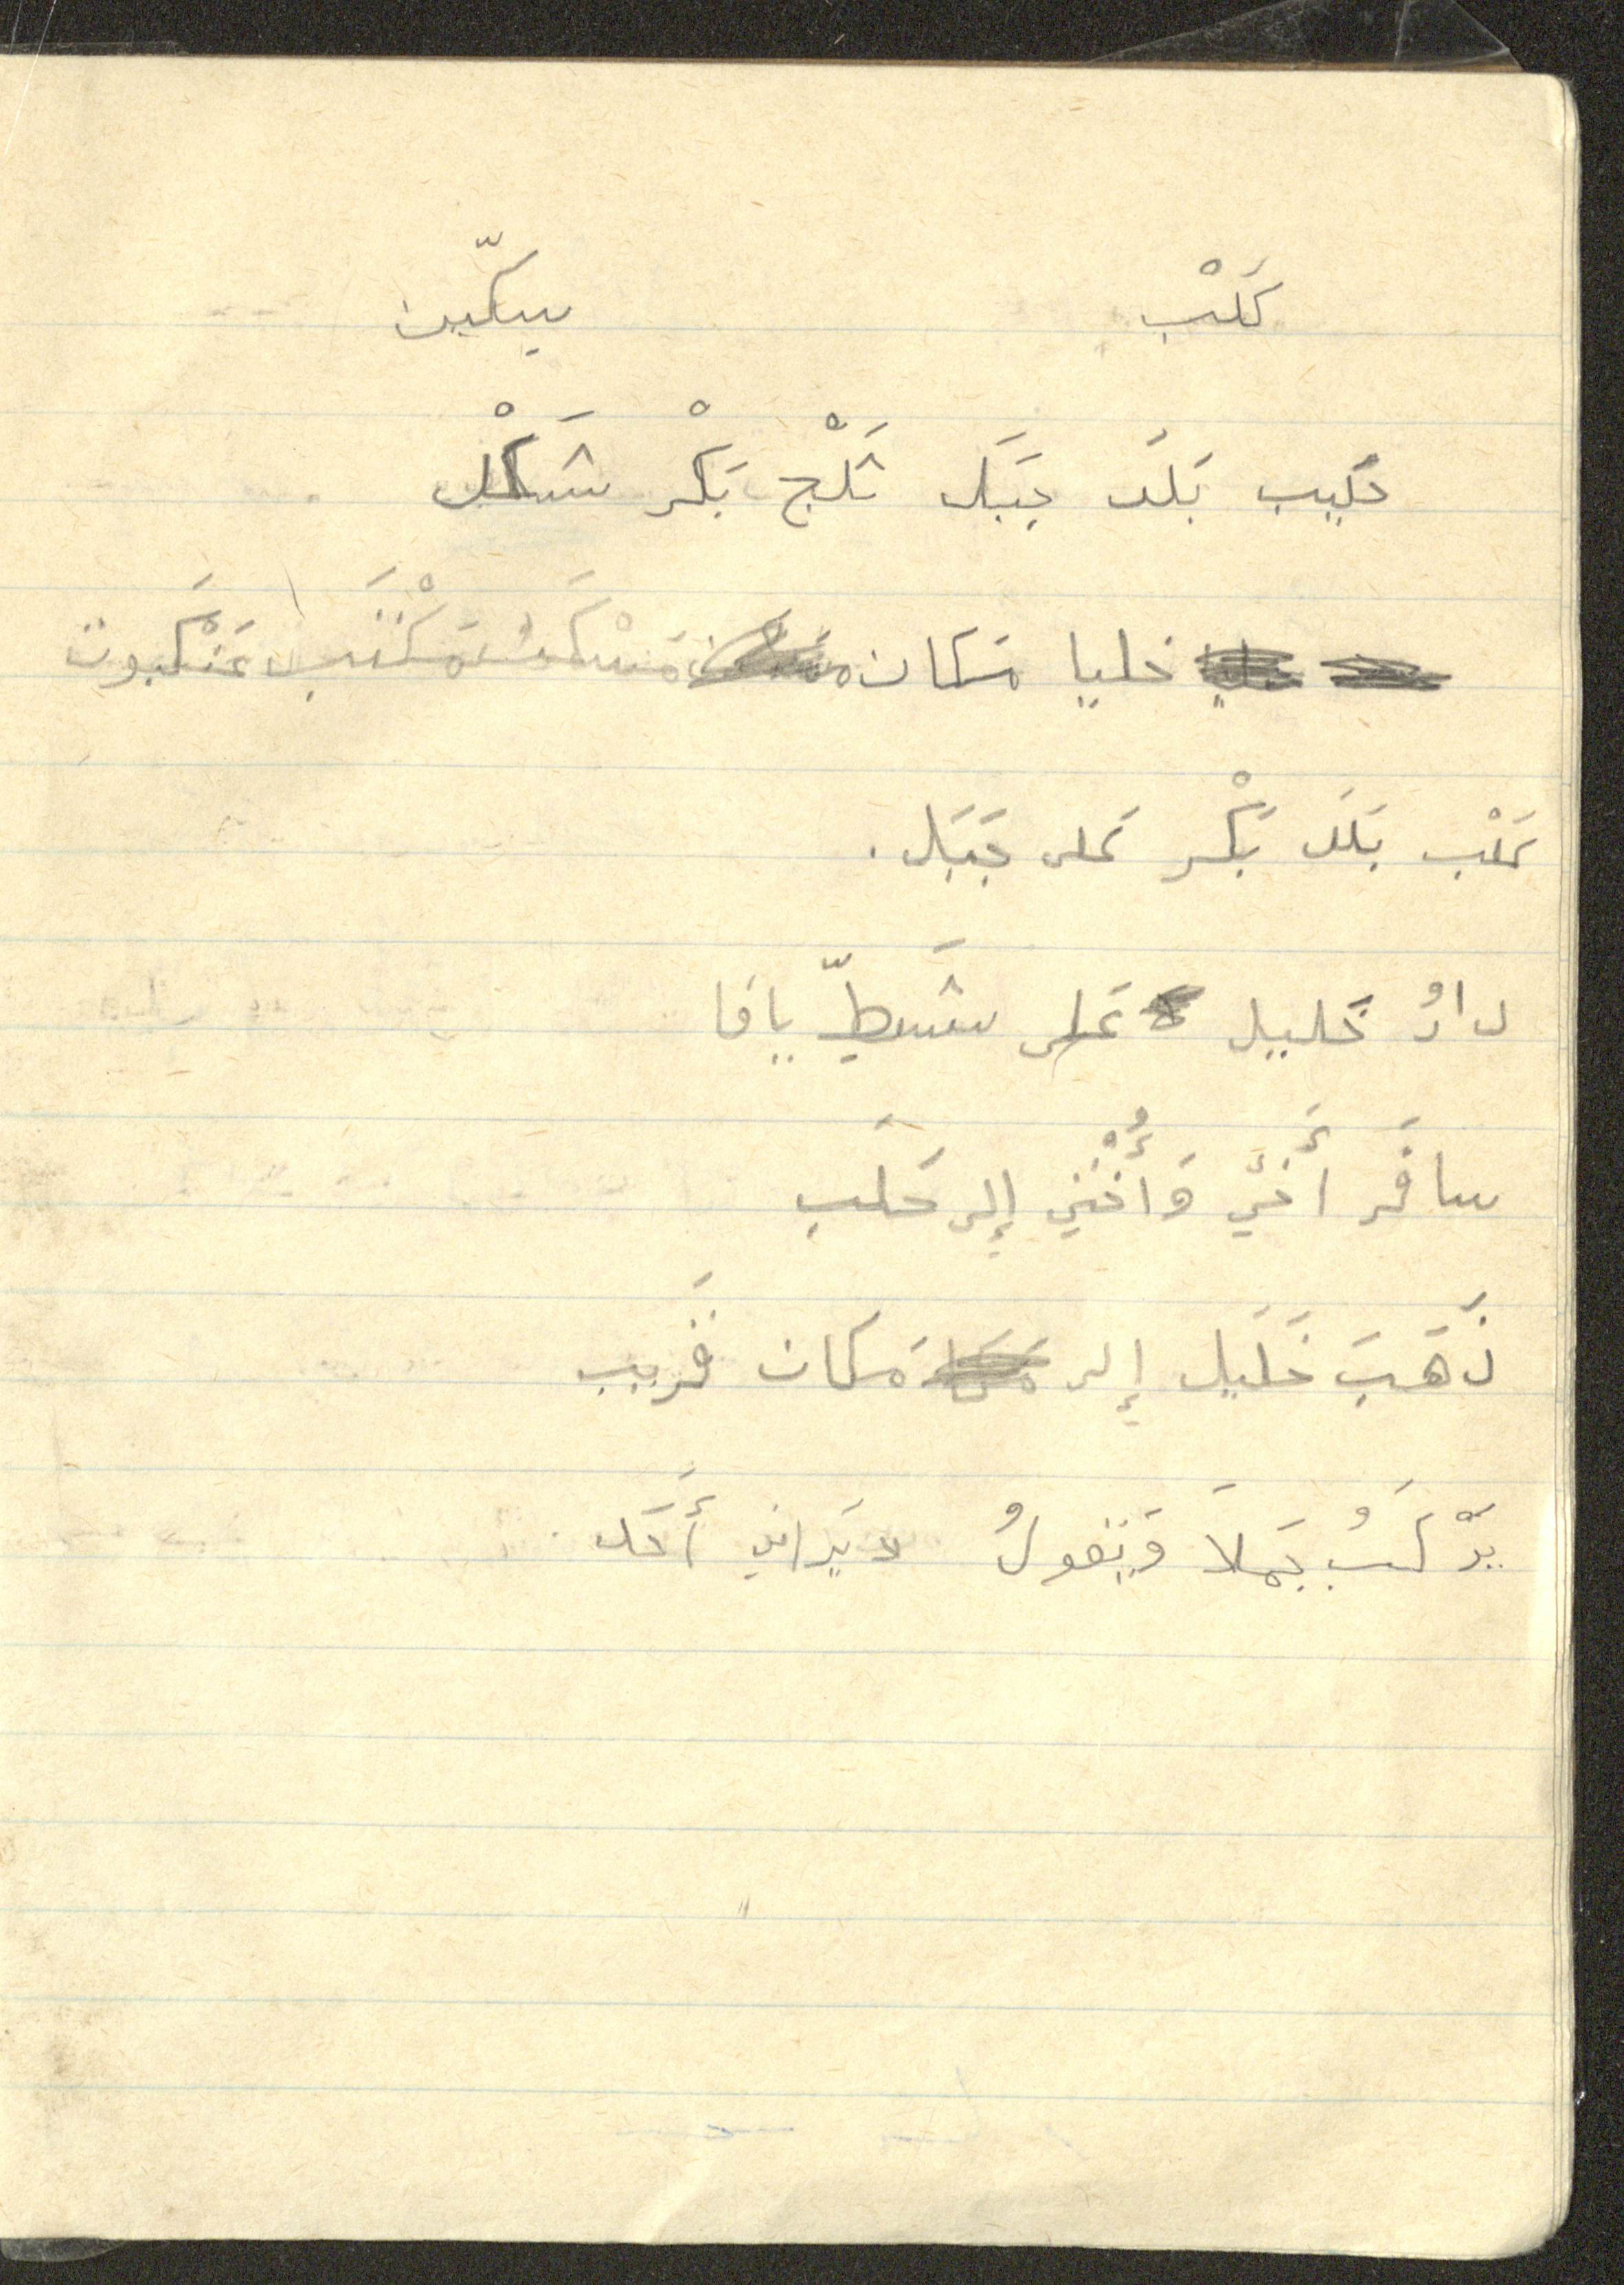 كَلْب سِكّين
حَليب بَلَد جَبَل ثَلْج بَكْر شَكْل
خليا مَكان مَسْكَن مَكْتَب عَنْكَبوت
كَلْب بَلَد بَكْر عَلى جَبَل.
دارُ خَليل عَلى شَطِّ يافا
سافَر أَخي وَأُخْتي إلى حَلَب
ذَهَبَ خَليل إلى مَكان قَريب
يَرْكَبُ جَمَلاً وَيَقولُ لا يَراني أَحَد